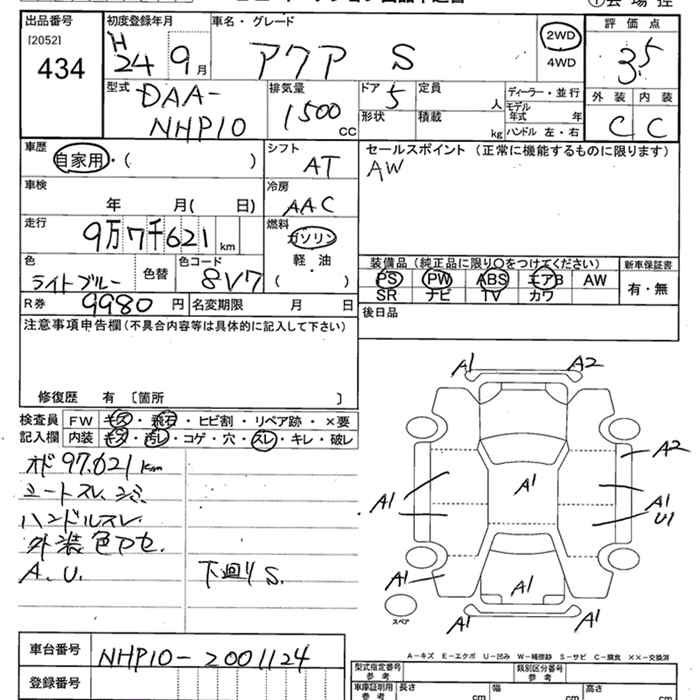 出品番号
[2052]
434
初度登録年月
H
24 9月
車名・グレード
アクア S
2WD
4WD
評価点
3.5
外装 内装
C C
型式
DAA-
NHP10
排気量
1500
CC
ドア
5
定員
人
形状
積載
kg
ディーラー・並行
モデル
年式 年
ハンドル 左・右
車歴
自家用・( )
シフト
AT
セールスポイント (正常に機能するものに限ります)
AW
車検
年 月( 日)
冷房
AAC
走行
9万7千621 km
燃料
ガソリン
軽・油
( )
色
ライトブルー
色替
色コード
8V7
装備品(純正品に限り○をつけてください)
PS PW ABS エアB AW
SR ナビ TV カワ
新車保証書
有・無
R券
9980 円
名変期限 月 日
後日品
注意事項申告欄(不具合内容等は具体的に記入して下さい)
修復歴 有 [箇所 ]
検査員
記入欄
FW キズ・飛石・ヒビ割・リペア跡・×要
内装 キズ・汚レ・コゲ・穴・スレ・キレ・破レ
オド97.621km
シートスレ、シミ、
ハンドルスレ
外装色アセ.
A.U.
下廻りS.
A1
A2
A2
A1
A1
A1
U1
A1
A1
A1
A1
スペア
A-キズ E-エクボ U-凹み W-補修跡 S-サビ C-腐食 ××-交換済
車台番号
NHP10-2001124
登録番号
型式指定番号
参考
類別区分番号
参考
車庫証明用
参考
長さ
cm
幅
cm
高さ
cm